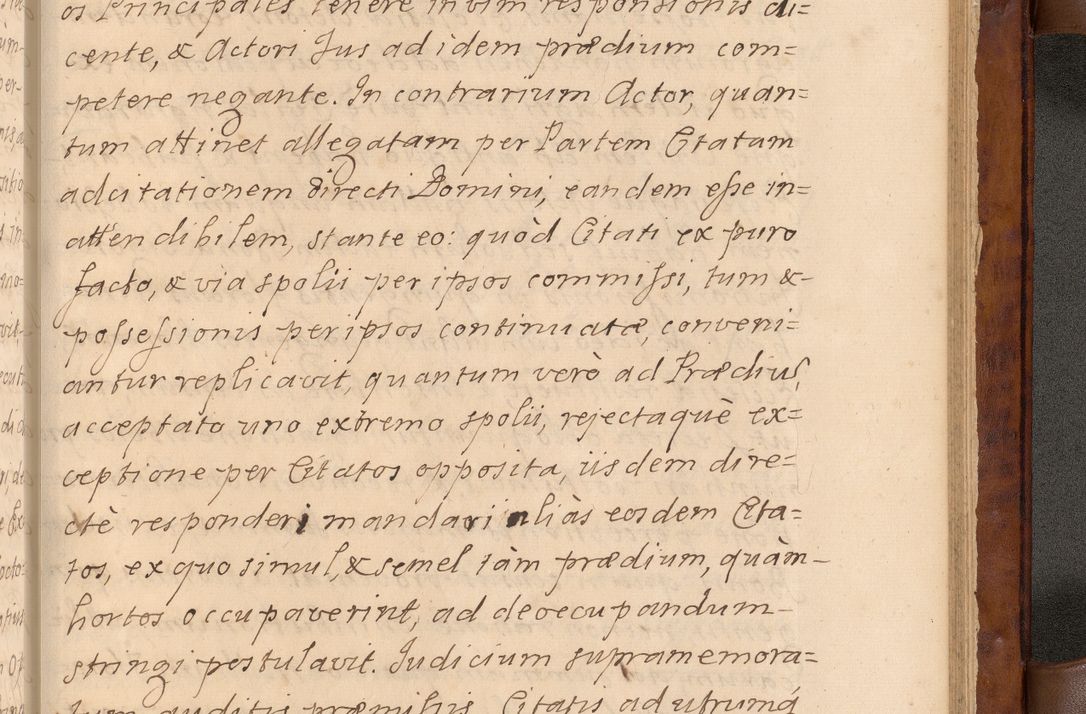 os Principales tenere in vim responsionis di=
cente, & Actori Jus ad idem prædium com=
petere negante. In contrarium Actor, quan=
tum attinet allegatam per Partem Citatam
adcitationem directi Domini, eandem eſse in=
attendibilem, stante eo: quòd Citati ex puro
facto, & via spolii per ipsos commiſsi, tum &
poſseſsionis per ipsos continuatæ, conveni=
antur replicavit, quantum verò ad Prædius,
acceptato uno extremo spolii, rejectaquè ex=
ceptione per Citatos opposita, iisdem dire=
ctè responderi mandari aliàs eosdem Cita=
tos, ex quo simul, & semel tàm prædium, quàm
hortos occupaverint, ad deoccupandum
stringi postulavit. Judicium supramemora=
tum auditis præmiſsis Citatis ad utrumq́